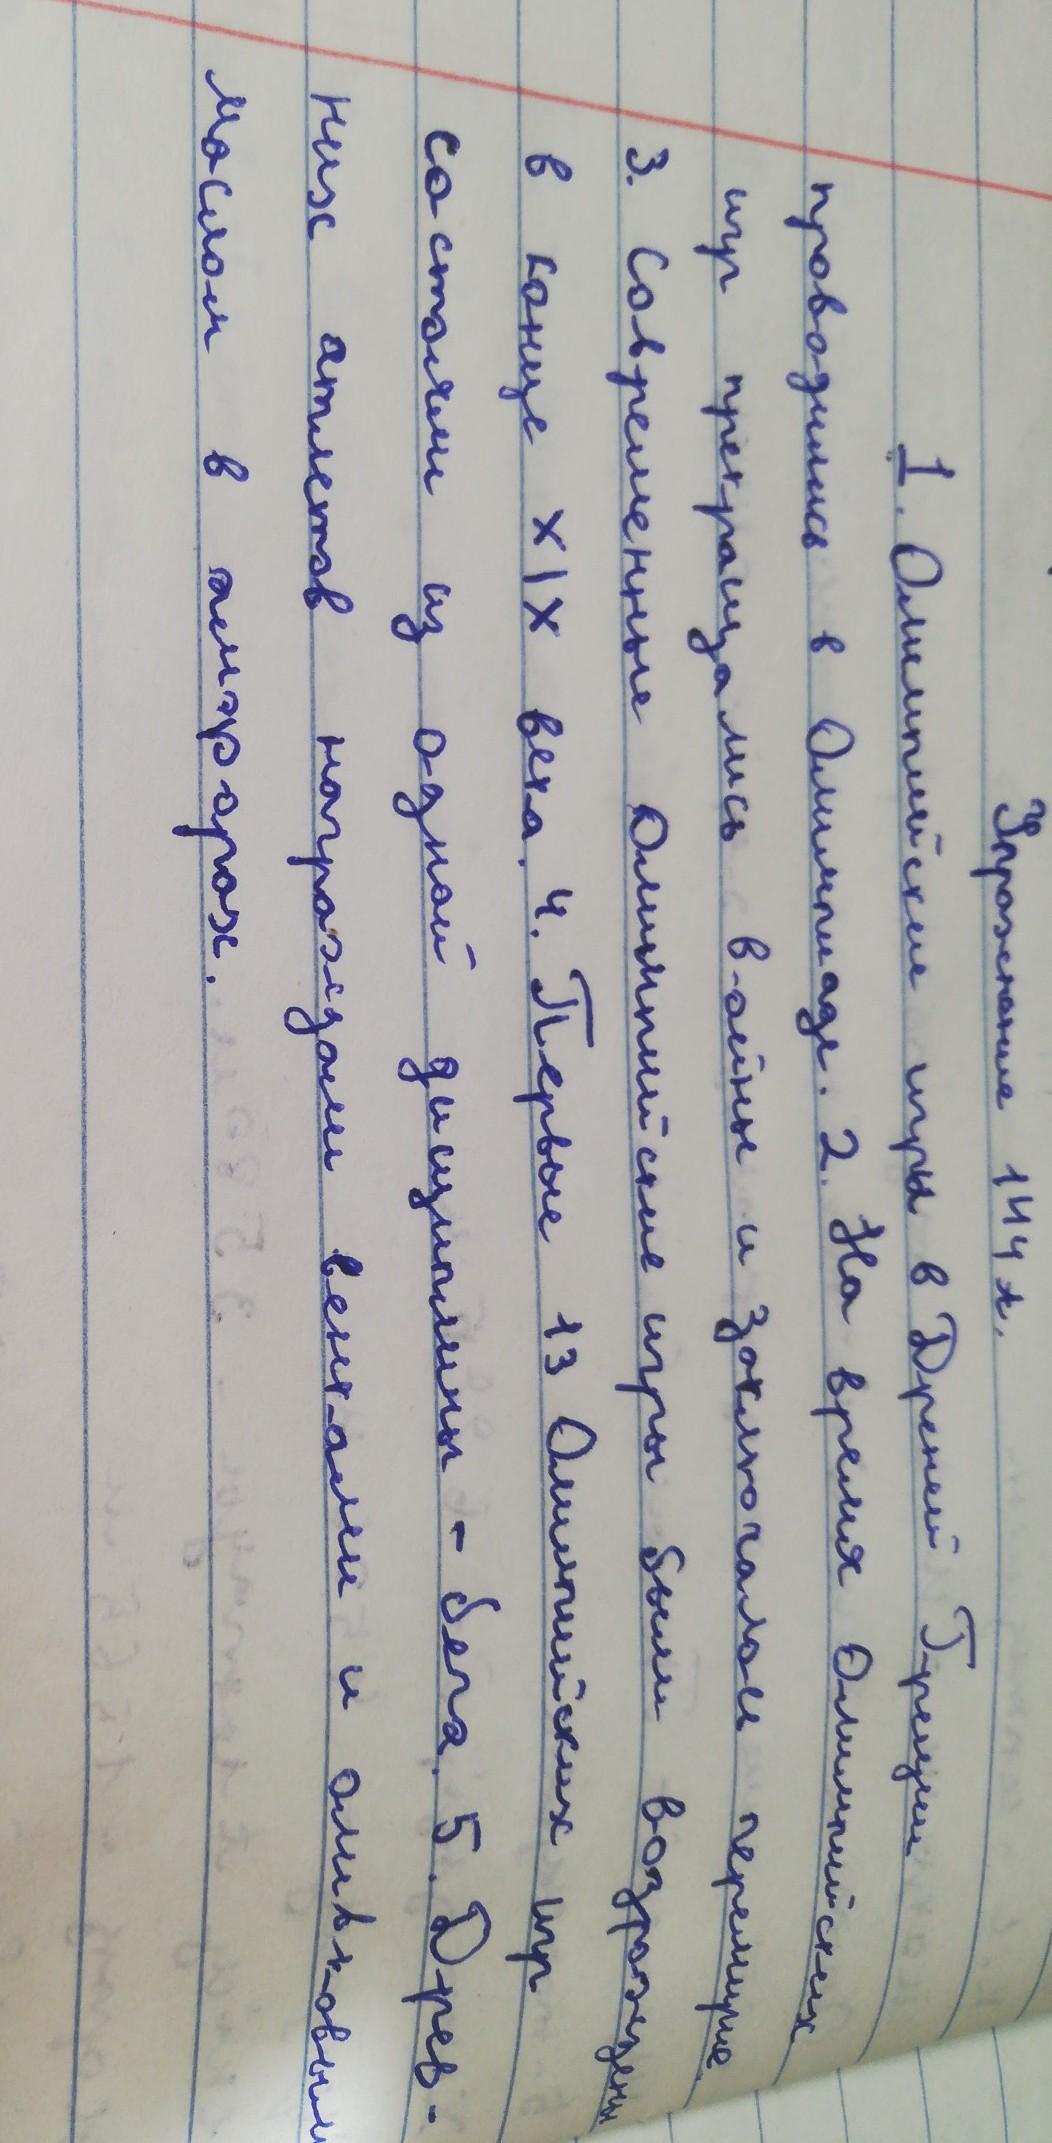 Упражнение 144 я.
1. Олимпийские игры в Дреней Греции
проводились в Олимпиаде. 2. На время Олимпийских
игр прекращались войны и заключалось перемирие.
3. Современные Олимпийские игры были возрождены
в конце XIX века. 4. Первые 13 Олимпийских игр
состояли из одной дисциплины - бега. 5. Древ-
них атлетов награждали венками и оливковым
маслом в амфорах.